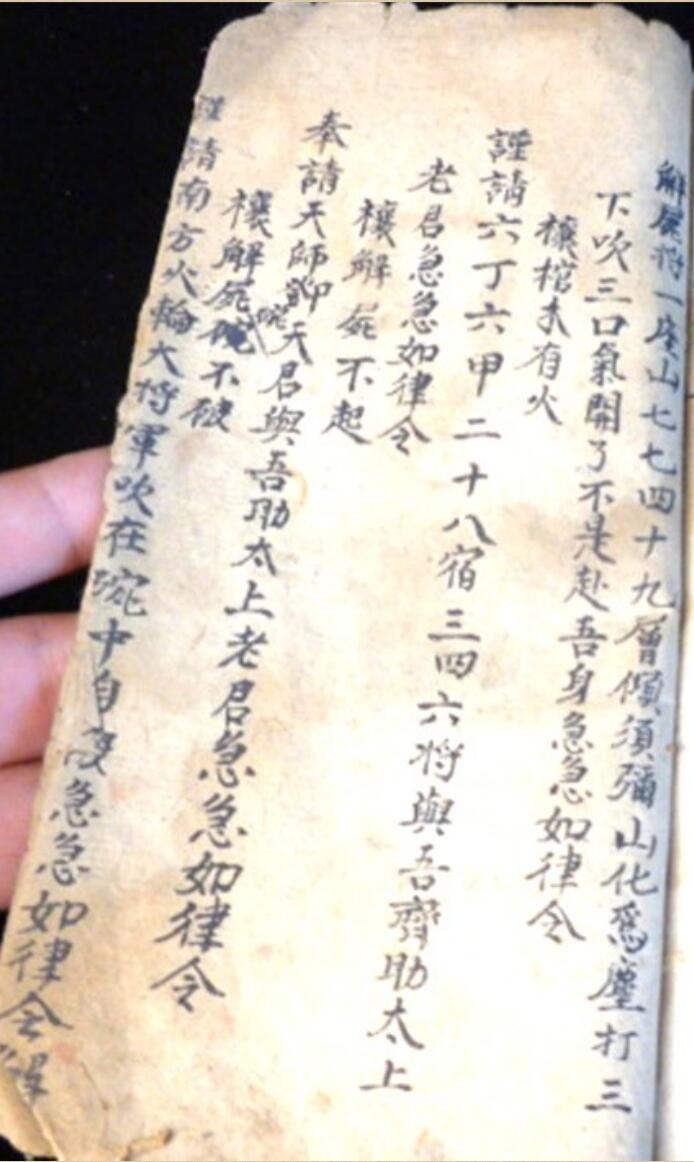 解屍将一座山七七四十九層傾須彌山化為塵打三
下吹三口氣開了不是赴吾身急急如律令
禳棺木有火
謹請六丁六甲二十八宿三四六将與吾齊助太上
老君急急如律令
禳解屍不起
奉請天師天君與吾助太上老君急急如律令
禳解屍不破
謹請南方火輪大将軍吹在碗中自急急如律令